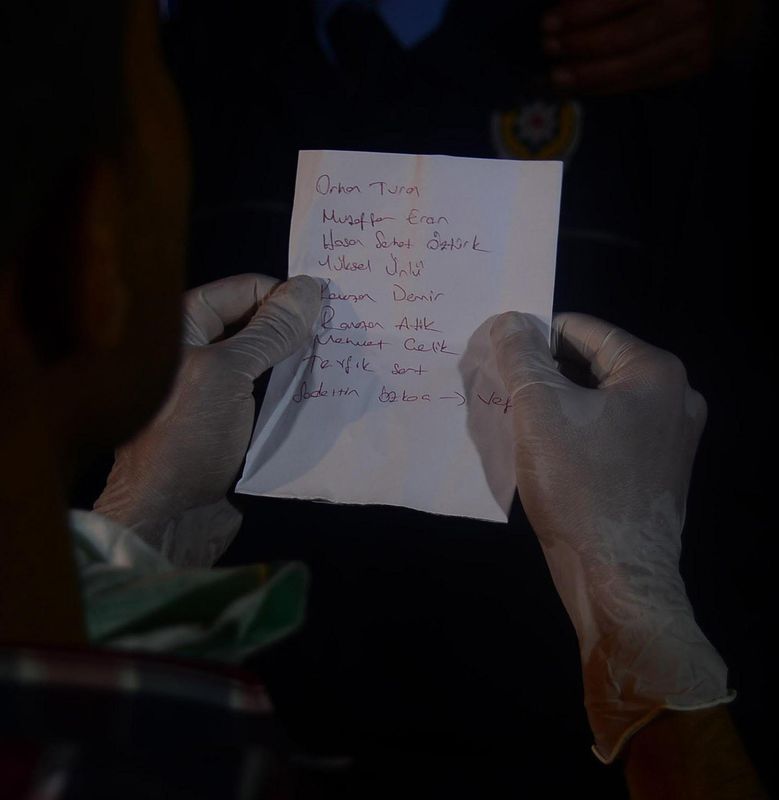 Orhan Turan
Muzaffer Eran
Hasan Sehat Öztürk
Yüksel Ünlü
Demir
Ramazan Atik
Mehmet Çelik
Tevfik Sert
Sadettin Özkoca → Vef